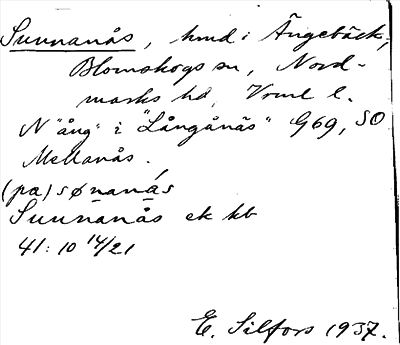 Sunnanås, hmd i Ängebäck,
Blomskogs sn, Nord-
marks hd, Vrml l.
N "äng" i "Långånäs" G69, SO
Mellanås.
(pa) sønanás
Sunnanås ek kb
41:10 14/21
E. Silfors 1937.